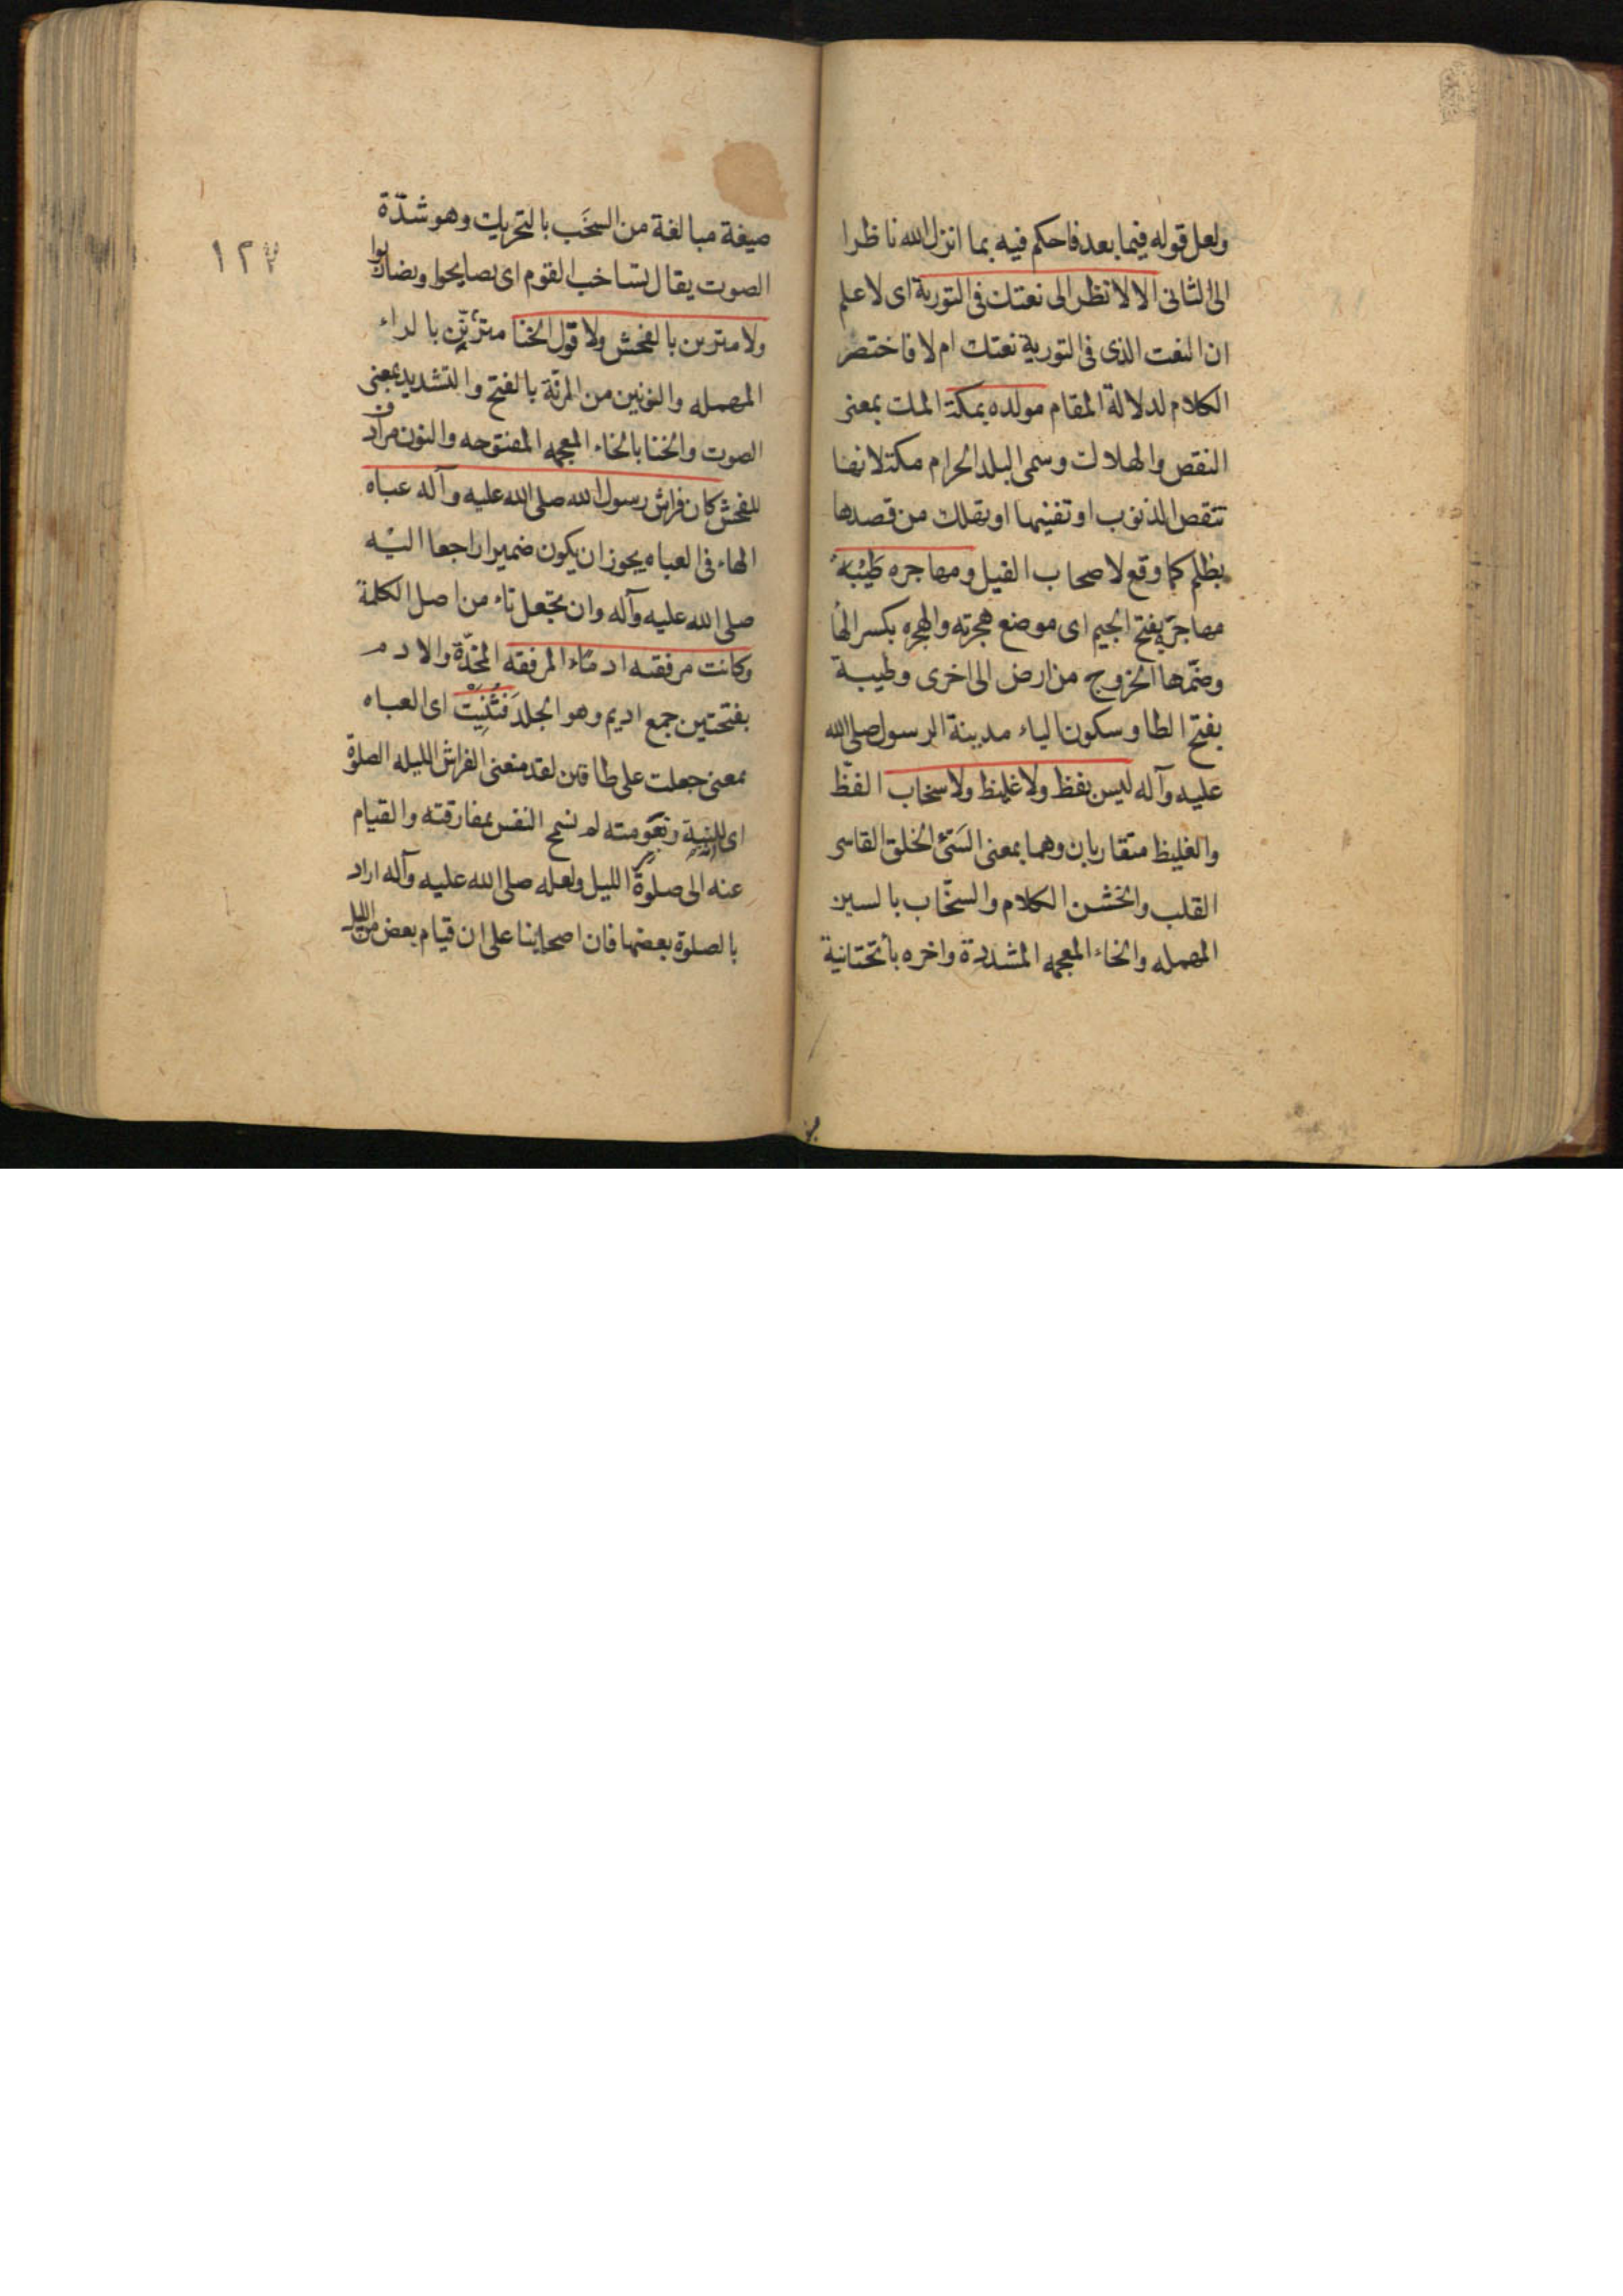 ولعل قوله فيما بعد فاحكم فيه بما انزل الله ناظرا
الى الثانى الا لانظر الى نعتك فى التورية اى لاعلم
ان النعت الذى فى التورية نعتك ام لا فاختصر
الكلام لدلالة المقام مولده بمكة المك بمعنى
النقص والهلاك وسمى البلد الحرام مكة لانها
تنقص الذنوب او تفنيها او تهلك من قصدها
بظلم كما وقع لاصحاب الفيل ومهاجره طَيْبَة
مهاجره بفتح الجيم اى موضع هجرته والهجره بكسر الها
وضمّها الخروج من ارض الى اخرى وطيبة
بفتح الطا وسكون الياء مدينة الرسول صلى الله
عليه وآله ليس بفظ ولا غليظ ولا سخاب الفظّ
والغليظ متقاربان وهما بمعنى السَّئ الخلق القاسى
القلب والخشن الكلام والسخّاب بالسين
المهمله والخاء المعجمه المشددة واخره باء تحتانية
صيغة مبالغة من السخَب بالتحريك وهو شدّة
الصوت يقال تساخب القوم اى تصايحوا وتضاربوا
ولا مترنن بالفحش ولا قول الخنا مترنّن بالراء
المهمله والنونين من الرنّة بالفتح والتشديد بمعنى
الصوت والخنا بالخاء المعجمه المفتوحه والنون مرادف
للفحش كان فراش رسول الله صلى الله عليه وآله عباه
الهاء فى العباه يجوز ان يكون ضميرا راجعا اليْه
صلى الله عليه وآله وان يجعل تاء من اصل الكلمة
وكانت مرفقته ادمًا المرفقه المخدّة والادم
بفتحتين جمع اديم وهو الجلد فَثُنِيَتْ اى العباه
بمعنى جعلت على طاقين لقد منعنى الفراش الليله الصلوة
اى للينه ونعومته لم تسمح النفس بمفارقته والقيام
عنه الى صلوة الليل ولعله صلى الله عليه وآله اراد
بالصلوة بعضها فان اصحابنا على ان قيام بعض من الليل
١٢٧